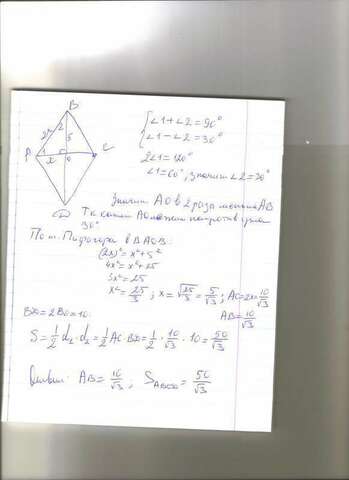 B
2x 2 5
A 1 x 0 C
D
∠1+∠2=90°
∠1-∠2=30°
2∠1=120°
∠1=60°, значит ∠2=30°
Значит AO в 2 раза меньше AB
Т.к катет AO лежит напротив угла
30°
По т. Пифагора в ΔAOB:
(2x)²=x²+5²
4x²=x²+25
3x²=25
x²=25/3; x=√25/√3=5/√3; AC=2x=10/√3
BD=2BO=10. AB=10/√3
S=1/2 d₁·d₂=1/2 AC·BD=1/2·10/√3·10=50/√3
Ответ: AB=10/√3; S_ABCD=50/√3